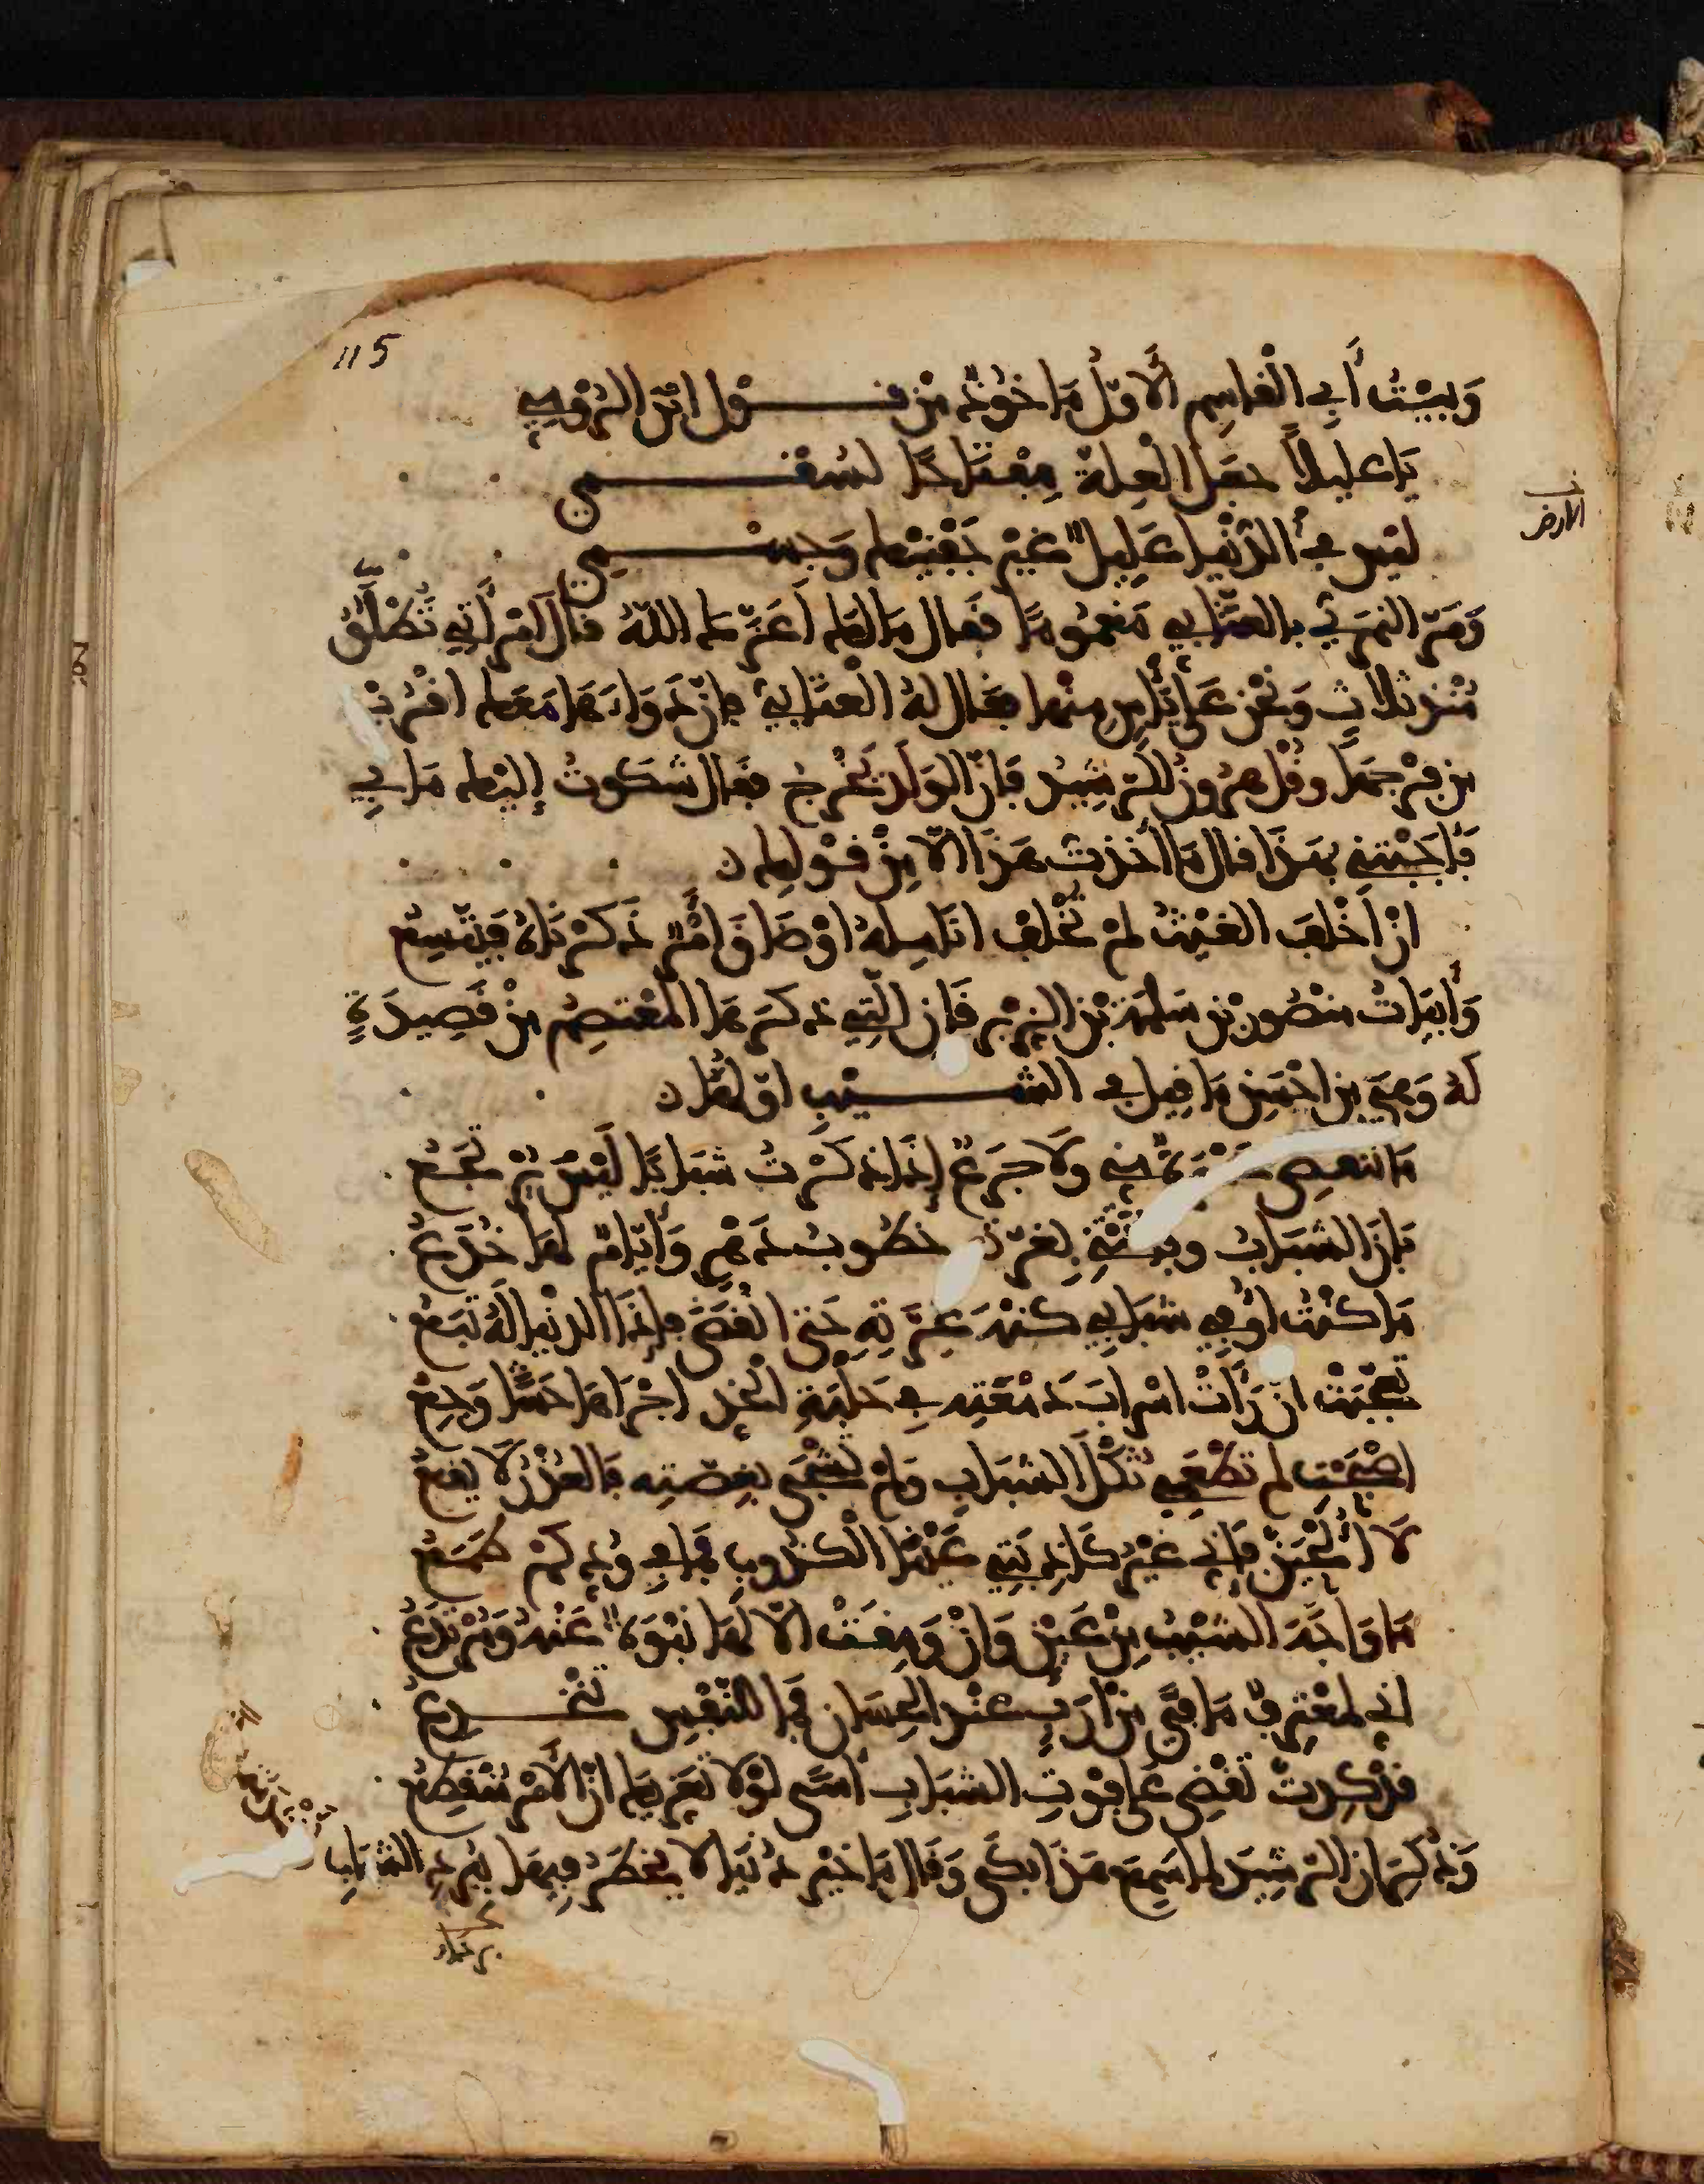 115
وَبَيْتُ أَبِي الْقَاسِمِ الْأَوَّلُ مَاخُوذٌ مِنْ قَوْلِ ابْنِ الرُّومِيِّ
يَا عَلِيلًا جَعَلَ الْعِلَّةَ مِفْتَاحًا لسُقْمِي
الارض
لَيْسَ فِي الدُّنْيَا عَلِيلٌ غَيْرَ جَفْنَيْكَ وَجِسْمِي
وَمَرَّ النمَرِيُّ بِالعَتَّابِي مَغْمُومًا فَقَال مَا لَكَ أَعَزَّكَ اللهُ قال امْرَأَتِي تُطْلَقُ
مُنْذ ثلاثٍ وَنَحْنُ عَلَى يَأْسٍ مِنْهَا فَقَال لهُ الْعَتَّابِيُّ فإنّ دَوَاءَهَا مَعَك اقْرُبْ
مِن فَرْجِهَا وقُل هَرُون الرَّشِيد فَإنّ الوَلَدَ يَخْرُجُ فقال شَكَوْتُ إِلَيْك مَا بِي
فَأَجَبْتَنِي بهَذَا قال مَا أَخَذت هَذَا الّا مِنْ قَوْلِك
انْ أَخْلَفَ الغَيْثُ لَمْ تُخْلِفْ انَامِلهُ اوْ ضَاقَ أَمْرٌ ذَكَرْنَاهُ فَيَتَّسِعُ
وَأَبيَاتُ مَنْصُورِ بْنِ سَلَمَة بْنِ الزبْرِقَان الّتِي ذكَرَهَا المُعْتَصِم مِنْ قَصِيدَةٍ
لَهُ وَهِيَ مِن احْسَنِ مَا قِيل فِي الشَّيْبِ اوّلهَا
مَا تَنقضِي حَسْرَةٌ مِنِّي ولَا جَزَعٌ إِذَا ذكَرْتُ شَبَابًا لَيْسَ يُرْتَجَعُ
بَانَ الشَّبَابُ وَ بِغرّته خطُوبُ دَهْرٍ وَأَيَّامٌ لَهَا خُدَعُ
مَا كُنْتُ اوفِي شَبَابِي كُنْهَ عِزَّتِهِ حَتَّى انْقَضَى فإذَا الدنْيَا لَهُ تَبَعُ
تَعَجَّبَتْ انْ رَأَتْ اسْرَابَ دَمْعَتِهِ فِي حَلْبَةِ الْخَدِّ اجْرَاهَا حَشًا وَجِعُ
اصْبَحْتِ لم تَطْعَمِي ثُكْلَ الشبَابِ وَلمْ تَشْجَيْ بِغصّتِهِ فَالعُذْرُ لَا يَقَعُ
لَا أُلْحِيَنَّ فَإِنِّي غَيْرُ كَاذِبَتِي عَيْنَا الْكذُوبِ فَمَا فِي وُدِّكُمْ طَمَعُ
مَا وَاجَهَ الشَّيْبَ مِنْ عَيْنٍ وَانْ وَمِقَتْ الّا لَهَا نَبْوَةٌ عَنْهُ وَمُرْتَدَعُ
انّي لَمُعْتَرِفٌ مَا فِيَّ مِنْ أرَبٍ عِنْد الْحِسَانِ فَمَا للنَّفْسِ تَنْخَدِعُ
قد كِدتَ تَقْضِي عَلَى فَوْتِ الشَّبَابِ أَسًى لَوْلَا تَعَزِّيكَ انّ الأَمْرَ مُنْقَطِعُ
وَذُكِرَ انّ الرَّشِيدَ لمّا سَمِعَ هَذَا بَكَى وَقَالَ مَا خَيْرُ دُنْيَا لَا يُخْطَرُ فِيهَا بِبُرْدِ الشَّبَابِ